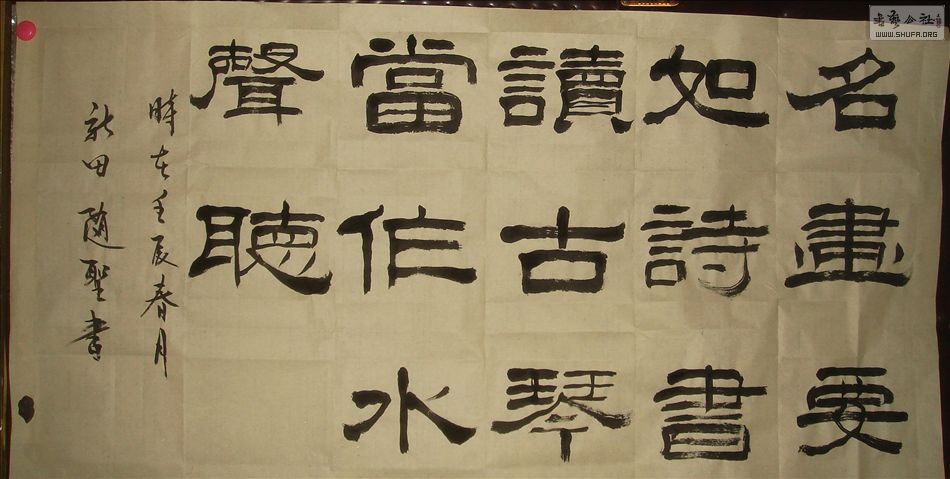 名畫要
如詩書
讀古琴
當作水
聲聽
時在壬辰春月
新田隨聖書
書法公社
WWW.SHUFA.ORG